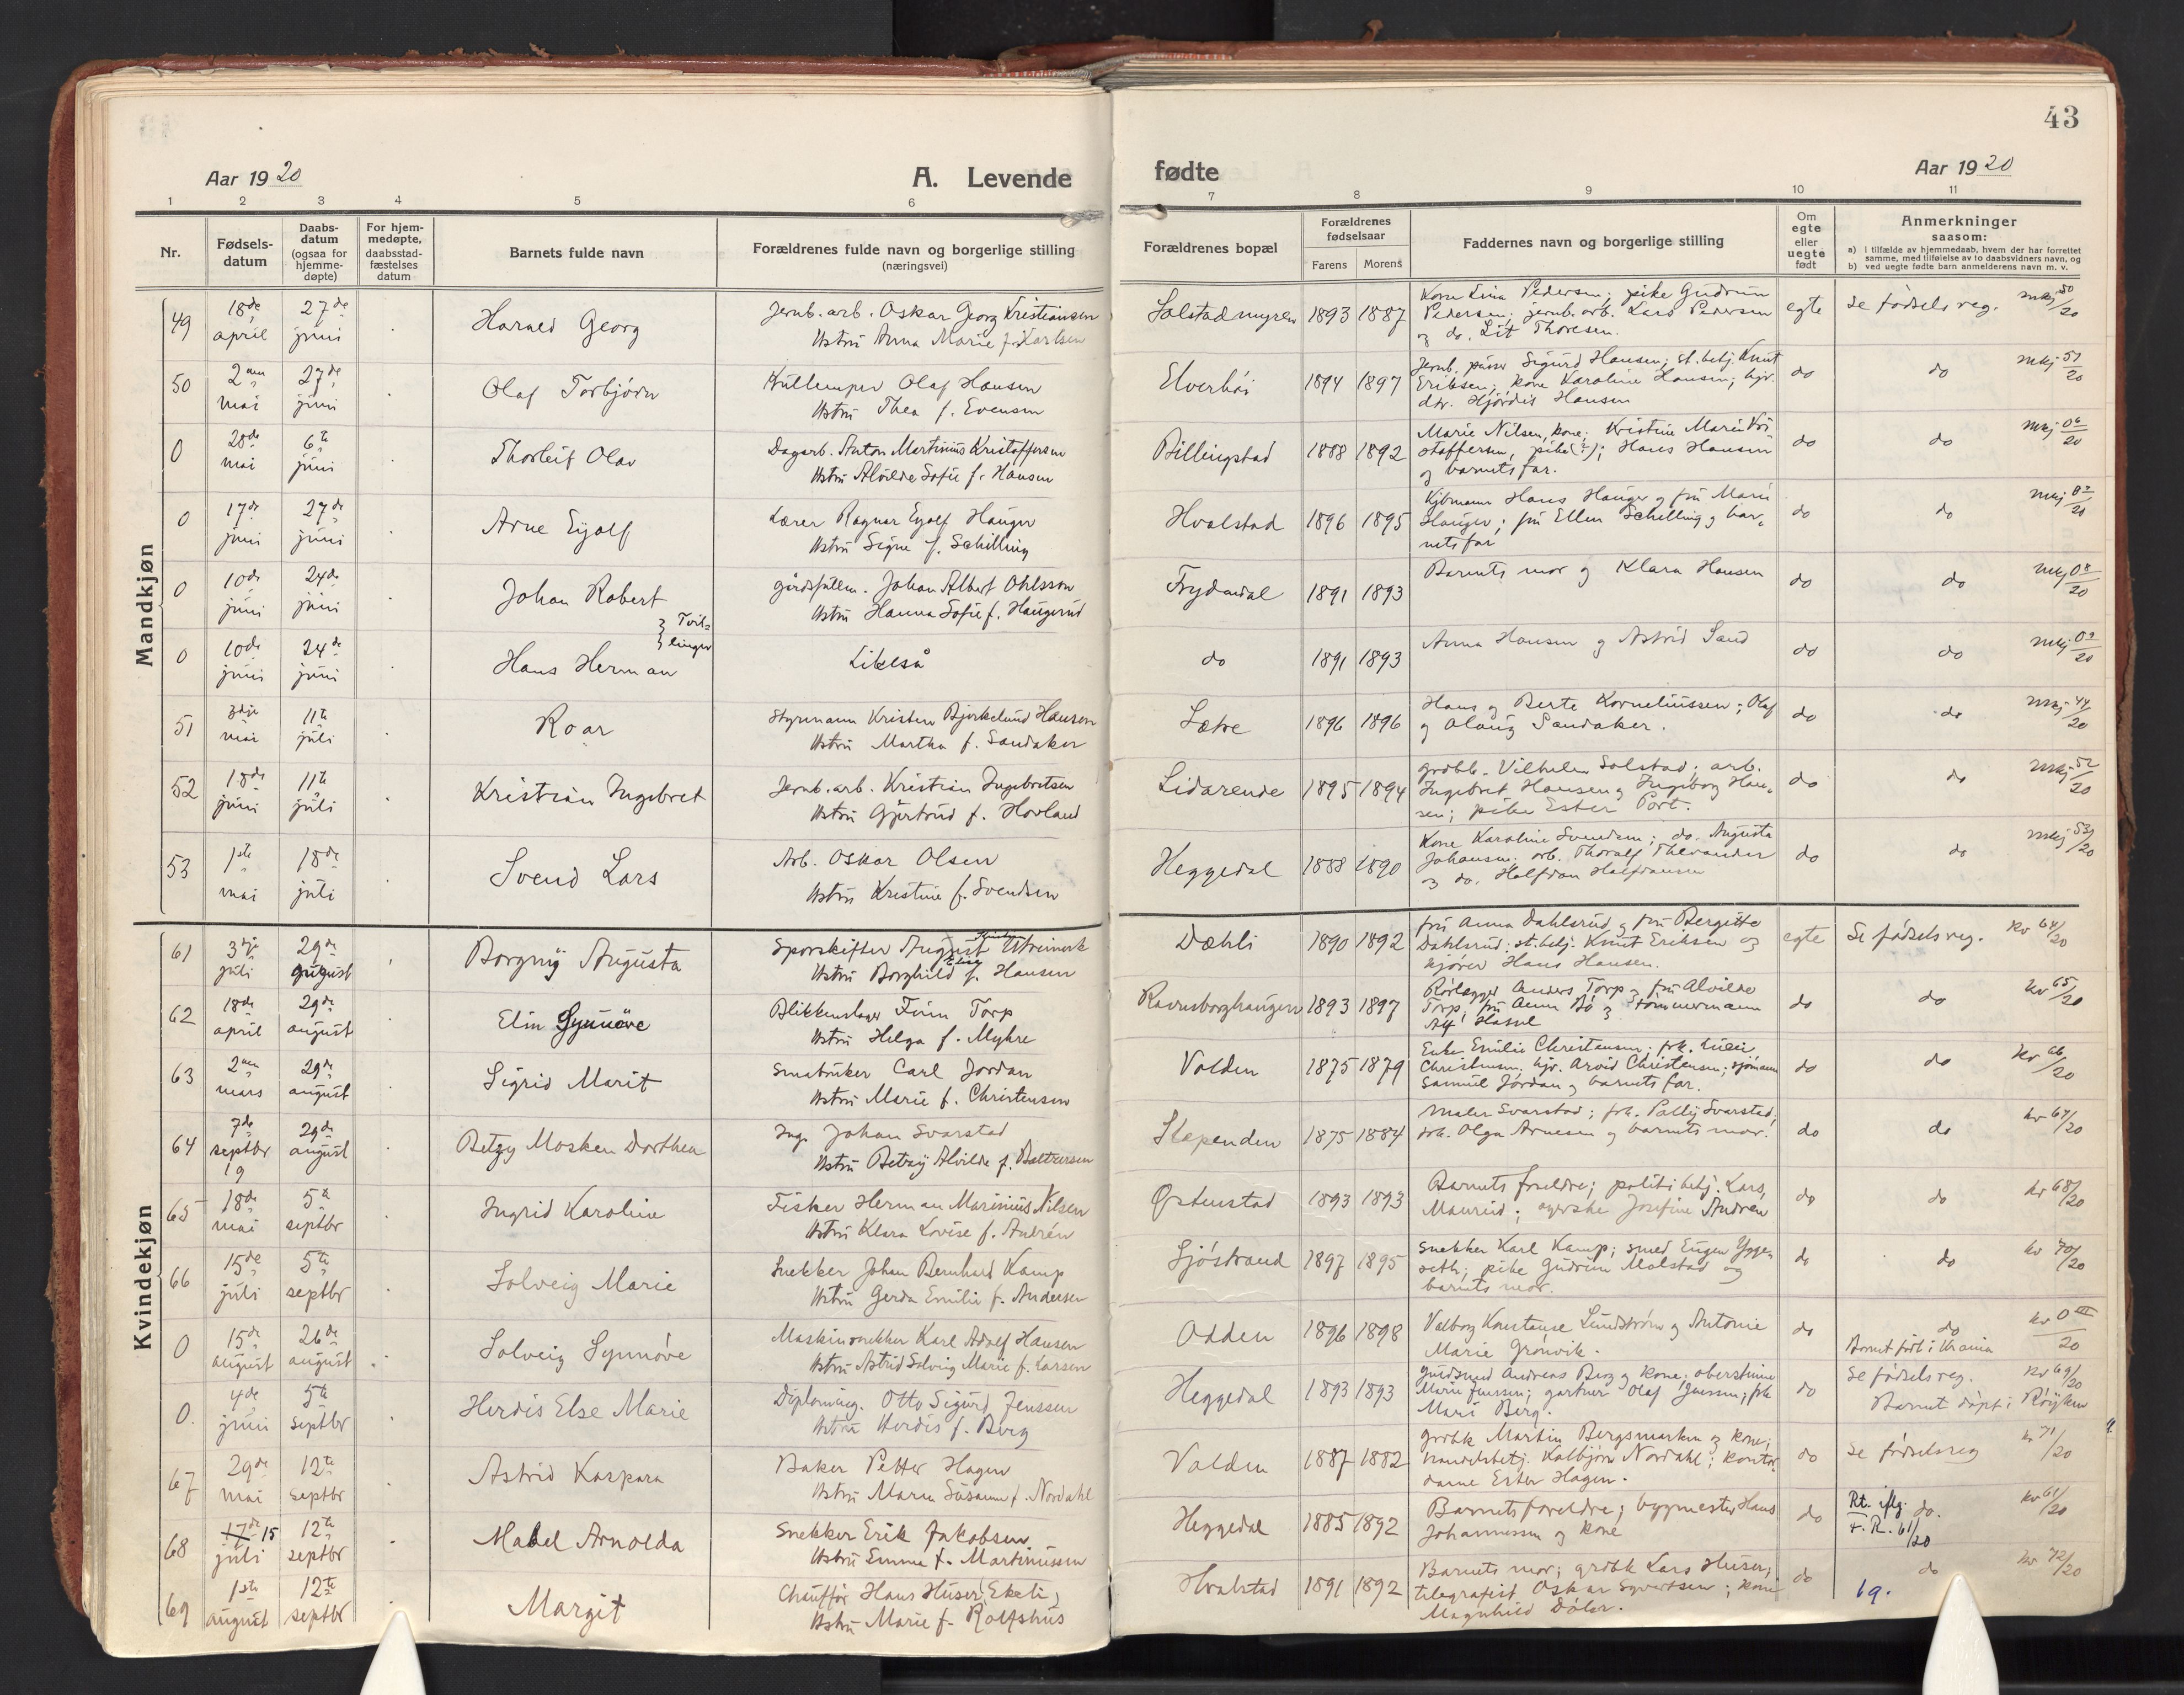 43
Aar 1920
A. Levende
fødte
Aar 1920
1 2 3 4 5 6 7 8 9 10 11
Nr.
Fødsels-
datum
Daabs-
datum
(ogsaa for
hjemme-
døpte)
For hjem-
medøpte,
daabsstad-
fæstelses
datum
Barnets fulde navn
Forældrenes fulde navn og borgerlige stilling
(næringsvei)
Forældrenes bopæl
Forældrenes
fødselsaar
Farens Morens
Faddernes navn og borgerlige stilling
Om
egte
eller
uegte
født
Anmerkninger
saasom:
a) i tilfælde av hjemmedaab, hvem der har forrettet
samme, med tilføielse av to daabsvidners navn, og
b) ved uegte fødte barn anmelderens navn m. v.
Mandkjøn
49 18de april 27de juni Harald Georg
Jernb. arb. Oskar Georg Kristiansen
Hstru Anna Marie f. Karlsen
Solstadmyren 1893 1887
Kone Lina Pedersen; pike Gudrun
Pedersen; jernb. arb. Lars Pedersen
og do. Thoresen.
egte Se fødselsreg. mkj 50/20
50 2den mai 27de juni Olaf Torbjørn
Olaf Hansen
Hstru Thea f. Evensen
Elverhøi 1894 1897
Jernb. Sigurd Hansen; st. betj. Knut
Eriksen; kone Karoline Hansen; hjv.
dtr. Hjördis Hansen
do do mkj 51/20
0 28de mai 6te juni Thorleif Olav
Dagarb. Anton Martinius Kristoffersen
Hstru Alvilde Sofie f. Hansen
Billingstad 1888 1892
Marie Nilsen, kone; Kristine Marie Kri-
stoffersen, pike (?); Hans Hansen
og barnets far.
do do mkj 06/20
0 17de juni 27de juni Arne Eyolf
Lærer Ragnar Eyolf Hauger
Hstru Signe f. Schilling
Hvalstad 1896 1895
Kjbmann Hans Hauger og fru Marie
Hauger; fru Ellen Schilling og bar-
nets far
do do
0 10de juni 24de juni Johan Robert
Johan Albert Ohlsson
Hstru Hanna Sofie f. Haugerud
Frydendal 1891 1893
Barnets mor og Klara Hansen
do do
} Tvil-
linger
0 10de juni 24de juni Hans Herman
Likeså
do 1891 1893
Anna Hansen og Astrid Sand
do do
51 3dje mai 11te juli Roar
Styrmann Kristen Bjerkelund Hansen
Hstru Martha f. Sandaker
Sætre 1896 1896
Hans og Berte Korneliussen; Olaf
og Olaug Sandaker.
do do mkj 44/20
52 18de juni 11te juli Kristian Ingebret
Jernb. arb. Kristian Ingebretsen
Hstru Gjertrud f. Hovland
Lidarende 1895 1894
grdbk. Vilhelm Solstad; arb.
Ingebret Hansen og Ingeborg Han-
sen; pike Ester Port.
do do mkj 52/20
53 1ste mai 18de juli Svend Lars
Arb. Oskar Olsen
Hstru Kristine f. Svendsen
Heggedal 1888 1890
Kone Karoline Svendsen; do. Augusta
Johansen; arb. Thoralf Thevander
og do. Halfdan Halfdansen
do do mkj 53/20
Kvindekjøn
61 3dje juli 29de august Borgny Augusta
Sporskifter August
Hstru Borghild f. Hansen
Dæhli 1890 1892
fru Anna Dahlsrud og fru Bergitte
Dahlsrud; st. betj. Knut Eriksen og
kjører Hans Hansen.
egte Se fødselsreg. kv 64/20
62 18de april 29de august Elin Synnöve
Blikkenslager Finn Torp
Hstru Helga f. Myhre
Ravnsborghaugen 1893 1897
Rørlegger Anders Torp og fru Alvilde
Torp; fru Anna Bø og tømmermann
Alf Hassel
do do kv 65/20
63 2den mars 29de august Sigrid Marit
Småbruker Carl Jordan
Hstru Marie f. Christensen
Volden 1875 1879
Enke Emilie Christensen; frk.
Christensen; hjv. Arvid Christensen; sjömann
Samuel Jordan og barnets far.
do do kv 66/20
64 7de septbr 19 29de august Betzy Mosken Dorthea
Ing. Johan Svarstad
Hstru Betzy Alvilde f.
Slependen 1875 1884
Maler Svarstad; frk. Svarstad;
frk. Olga Arnesen og barnets mor.
do do kv 67/20
65 18de mai 5te septbr Ingrid Karoline
Fisker Herman Marinius Nilsen
Hstru Klara Lovise f. Andrén
Østenstad 1893 1893
Barnets foreldre; politibetj. Lars
Maurud; Josefine Andren
do do kv 68/20
66 15de juli 5te septbr Solveig Marie
Snekker Johan Bernhard Kamp
Hstru Gerda Emilie f. Andersen
Sjöstrand 1897 1895
Snekker Karl Kamp; smed Eugen Ygge-
seth; pike Gudrun Malstad og
barnets mor.
do do kv 70/20
0 15de august 26de august Solveig Synnöve
Maskinsnekker Karl Adolf Hansen
Hstru Astrid Solveig Marie f. Larsen
Odden 1896 1898
Valborg Konstanse Lundström og Antonie
Marie Grönvik.
do do
Barnet født i Krania
0 4de juni 5te septbr Herdis Else Marie
Diploming. Otto Sigurd Jenssen
Hstru Herdis f. Berg
Heggedal 1893 1893
Andreas Berg og kone;
Marie Jenssen; gartner Olaf Jenssen; frk
Mari Berg.
do Se fødselsreg. kv 69/20
Barnet döpt i Röyken
67 29de mai 12te septbr Astrid Kaspara
Baker Petter Hagen
Hstru Maren Susanne f. Nordahl
Volden 1887 1882
grdbk Martin Bergsmarken og kone;
handelsbetj. Kolbjørn Nordahl; kontor-
dame Ester Hagen.
do Se fødselsreg kv 71/20
68 17de 15 juli 12te septbr Mabel Arnolda
Snekker Erik Jakobsen
Hstru Emma f. Martinussen
Heggedal 1885 1892
Barnets foreldre; bygmester Hans
Johannessen og kone
do Rt. iflg. do.
F. R. 61/20
kv 61/20
69 1ste august 12te septbr Margit
Chauffør Hans Huser (Ekeli)
Hstru Marie f. Rolfshus
Hvalstad 1891 1892
Barnets mor; grdbk Lars Huser;
telegrafist Oskar Syvertsen; kone
Magnhild
do do kv 72/20
19.